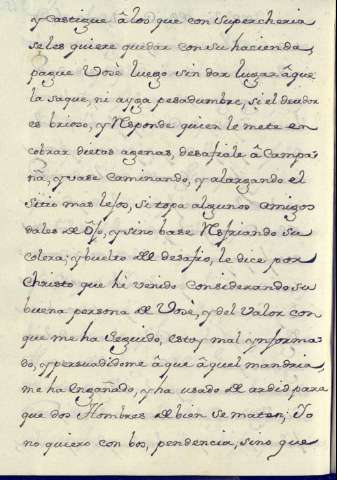 y castigue â los que con supercheria
se les quiere quedar con su hacienda,
pague Vosè luego sin dar lugar â que
la saque, ni ayga pesadumbre, si el deudor
es brioso, y Responde quien le mete en
cobrar dietas agenas, desafiale â Campa-
ña, y vase caminando, y alargando el
sitio mas lejos, si topa algunos amigos
dales de ojo, y sino base Resfriando su
colera; y buelto del desafio, le dice por
Christo que hè venido considerando su
buena persona de Vosè, y del valor con
que me ha seguido, estoy mal ynforma-
do, y persuadidome â que âquel mandria,
me ha engañado, y ha usado de ardid para
que dos Hombres de bien se maten; Yo
no quiero con bos, pendencia, sino que